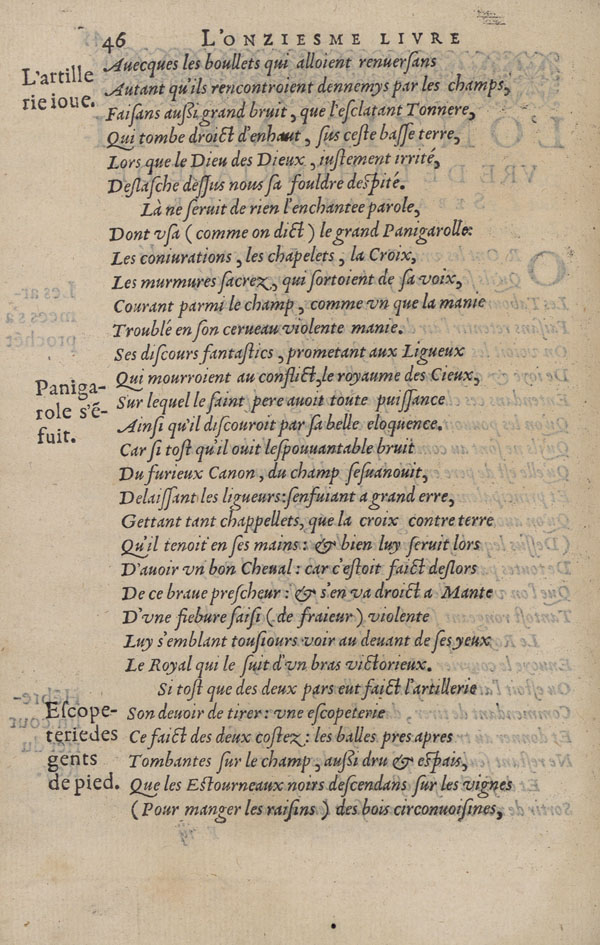 46 L'ONZIESME LIVRE
L'artille
rie ioue.
Auecques les boullets qui alloient renuersans
Autant qu'ils rencontroient dennemys par les champs,
Faisans aussi grand bruit, que l'esclatant Tonnere,
Qui tombe droict d'enhaut, sus ceste basse terre,
Lors que le Dieu des Dieux, iustement irrité,
Deslasche dessus nous sa fouldre despité.
Là ne seruit de rien l'enchantee parole,
Dont vsa (comme on dict) le grand Panigarolle:
Les coniurations, les chapelets, la Croix,
Les murmures sacrez, qui sortoient de sa voix,
Courant parmi le champ, comme vn que la manie
Troublé en son cerueau violente manie.
Ses discours fantastics, prometant aux Ligueux
Paniga-
role s'é-
fuit.
Qui mourroient au conflict, le royaume des Cieux,
Sur lequel le saint pere auoit toute puissance
Ainsi qu'il discouroit par sa belle eloquence.
Car si tost qu'il ouit lespouuantable bruit
Du furieux Canon, du champ sesuanouit,
Delaissant les ligueurs: senfuiant a grand erre,
Gettant tant chappellets, que la croix contre terre
Qu'il tenoit en ses mains: & bien luy seruit lors
D'auoir vn bon Cheual: car c'estoit faict deslors
De ce braue prescheur: & s'en va droict a Mante
D'vne fiebure saisi (de fraieur) violente
Luy s'emblant tousiours voir au deuant de ses yeux
Le Royal qui le suit d'vn bras victorieux.
Si tost que des deux pars eut faict l'artillerie
Escope-
terie des
gents
de pied.
Son deuoir de tirer: vne escopeterie
Ce faict des deux costez: les balles pres apres
Tombantes sur le champ, aussi dru & espais,
Que les Estourneaux noirs descendans sur les vignes
(Pour manger les raisins) des bois circonuoisines,